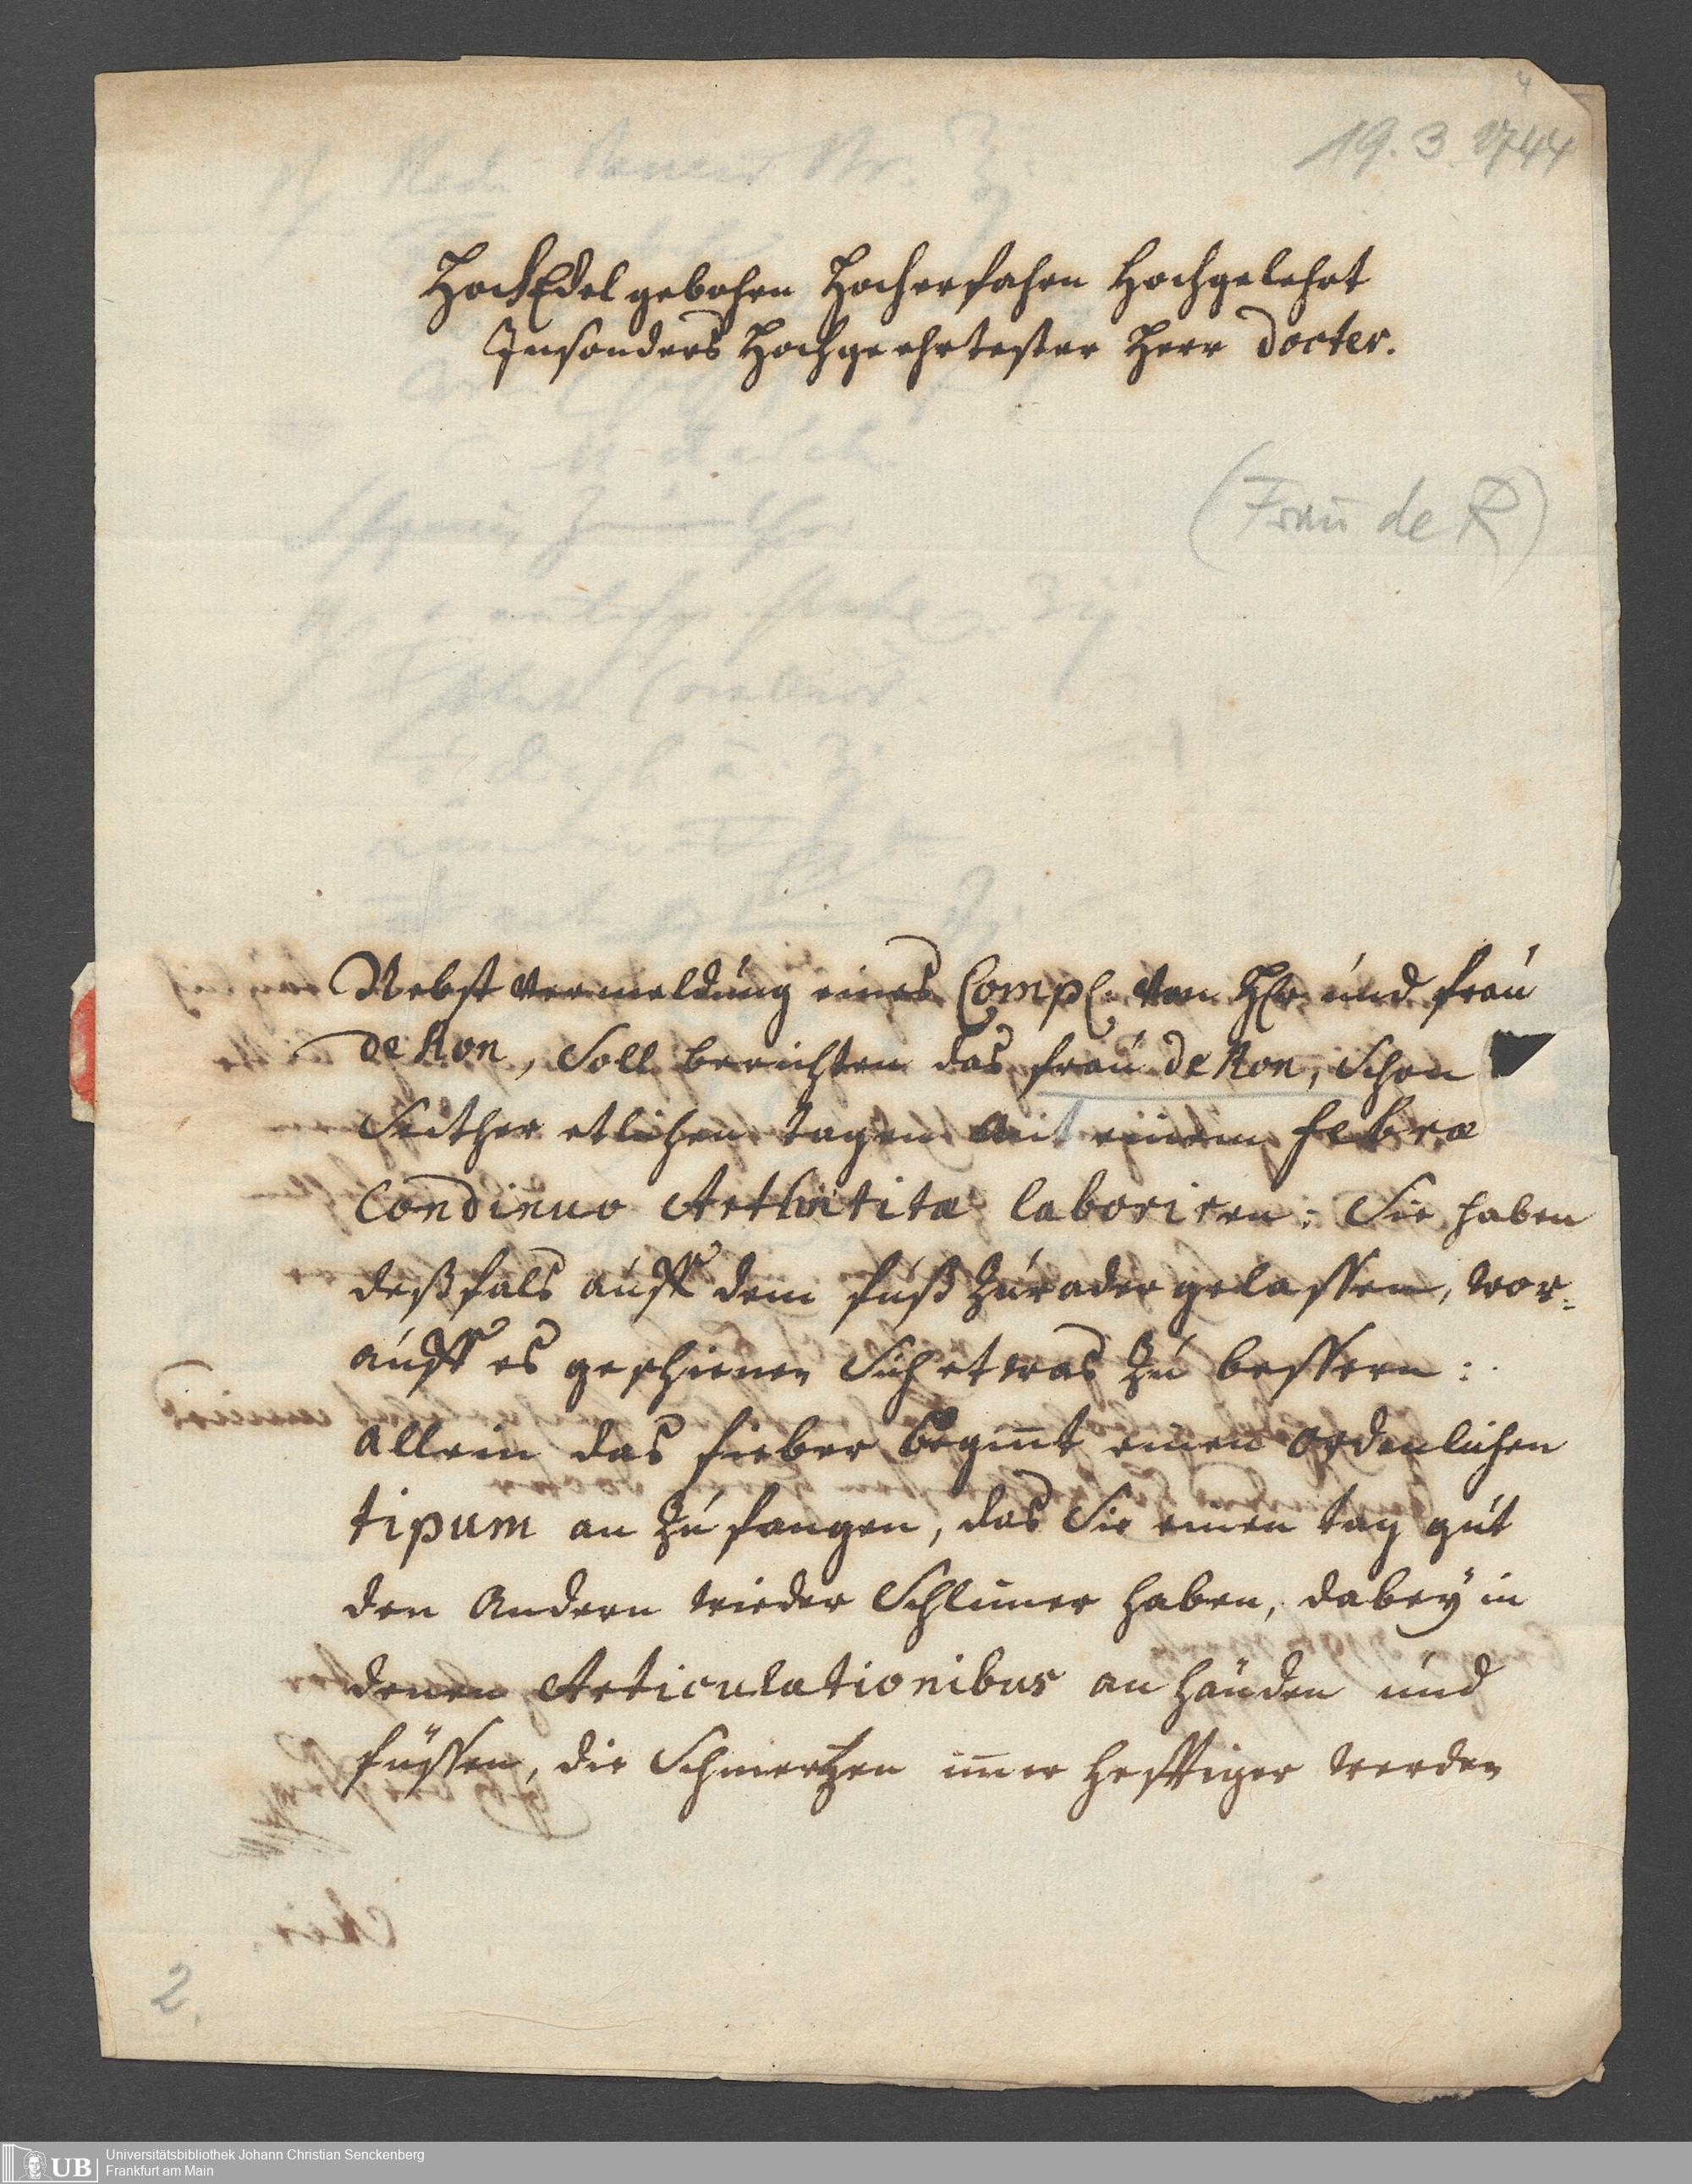 4
19. 3. 1744
HochEdel gebohren Hocherfahren Hochgelehrt
Insonders Hochgeehrtester Herr Docter.
(Frau de R)
Nebst Vermeldung eines Compl: Von Hr. und frau
de Ron, Soll berichten das frau de Ron, Schon
Seither etlichen tagen mit einem febræ
Condinuo Arthritita laboriren: Sie haben
deßfals auff dem fuß Zur ader gelassen, wor=
auff es geschienen Sich etwas Zu bessern:
allein das fieber beginnt einen ordenlichen
tipum an Zu fangen, das Sie einen tag gut
den Andern wieder Schlimer haben, dabey in
denen Articulationibus an händen und
füssen, die Schmertzen immer hefftiger werden
2.
UB
Universitätsbibliothek Johann Christian Senckenberg
Frankfurt am Main